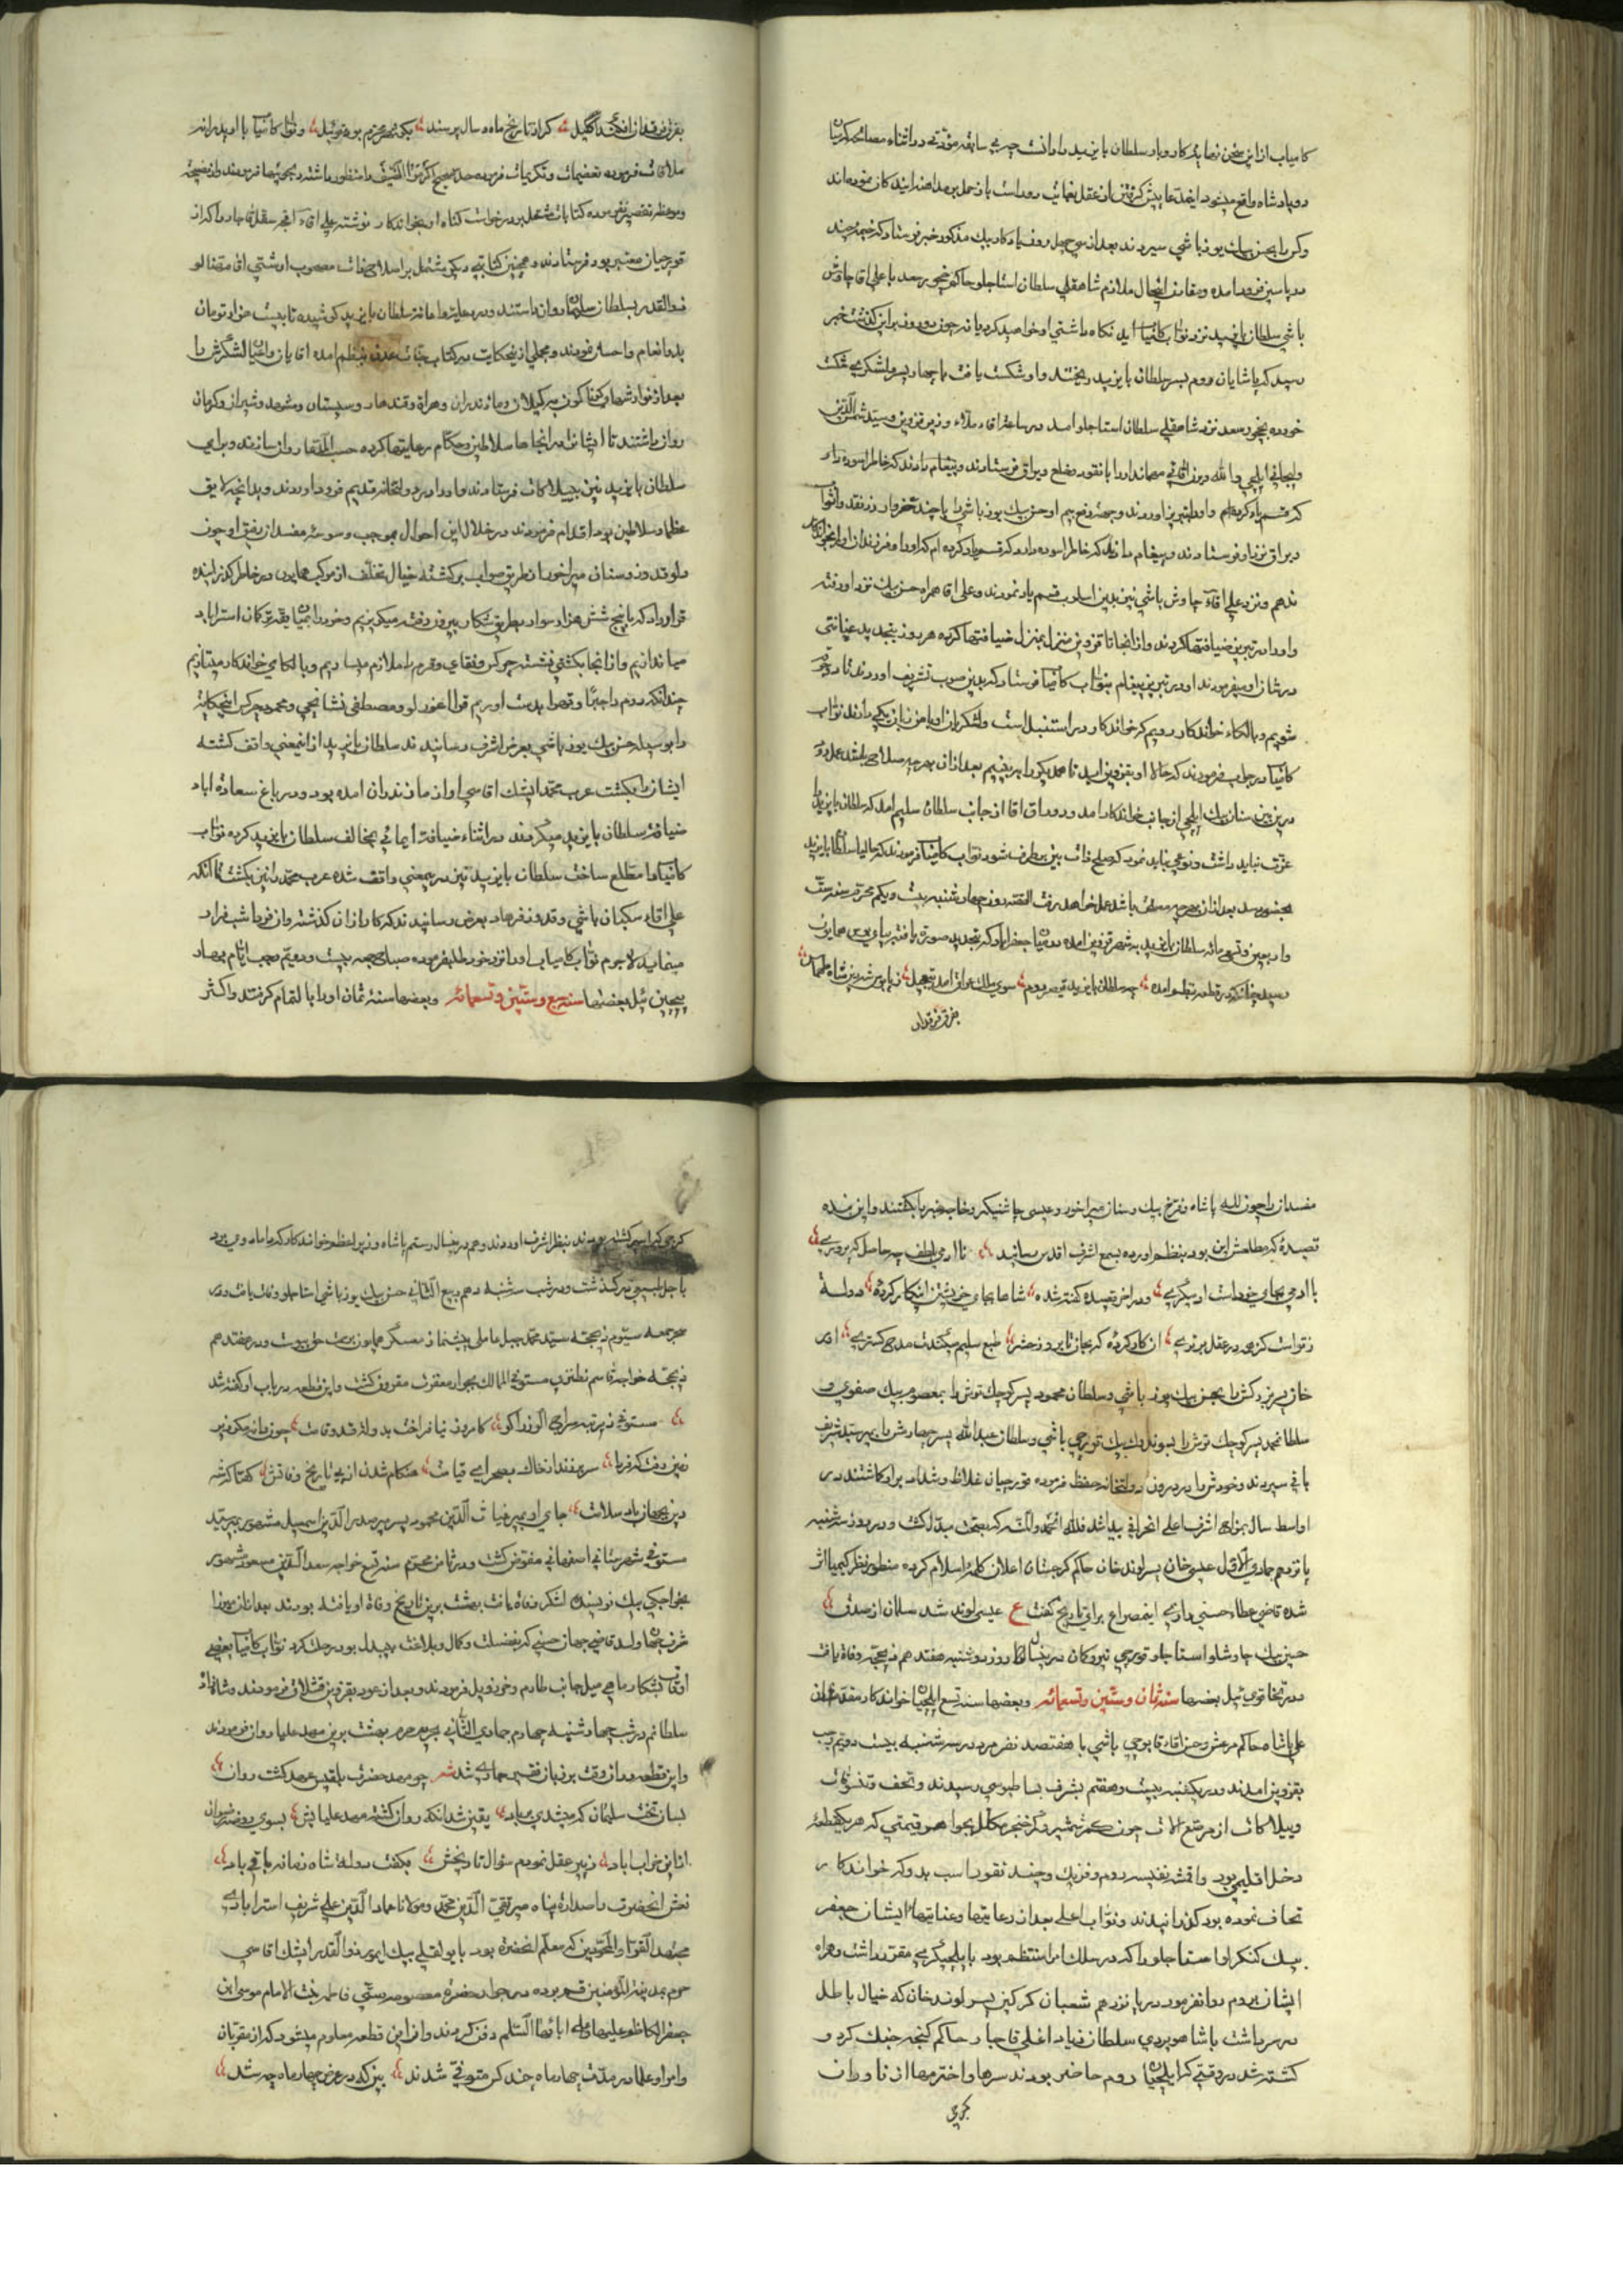 کامیاب ازین سخن نهایة کار و بار سلطان بایزید را دانست چه بی سابقه مودتی در اثناء مصالحه کردن
دو پادشاه واقع میشود این مدعا پیش گرفتن از عقل بغایت دور است
و کس را بحسن بیک یوزباشی سپردند بعد از سی چهل روز یادکار بیک مذکور خبر فرستاد که خیمه چند
در یاسین فرود آمده و مقارن اینحال ملازم شاهقلی سلطان استاجلو حاکم نخجوان رسید با علی اقا چاوش
باشی سلطان بایزید نزد نواب کامیاب آید نگاه داشتی او خواهید کرد یا نه چون دو روز برین گذشت خبر
رسید که پاشایان روم بسر سلطان بایزید ریختند و او شکست یافت با چهار پسر و لشکری شکست
خورده بنخجور سعد نزد شاهقلی سلطان استاجلو آمد در ساعت اقاء ملاء وزیر قزوین و سید شمس الدین
که قسم یاد کرده‌ام و او را بتبریز آوردند و جمعه نهم او حسن بیک یوزباشی را با چند خروار زر نقد و اثواب
و یراق نزد او فرستادند و پیغام دادند که خاطر آسوده دارد که قسم یاد کرده ام که او را و فرزندان او را بخواندکار
ندهم و نزد علی اقاء چاوش باشی نیز بدین اسلوب قسم یاد نمودند و علی اقا همراه حسن بیک نزد او رفته
و او را در تبریز ضیافتها کردند و از انجا تا قزوین منزل بمنزل ضیافتها کرده هر روز بتجدید عنایتی
در شان او میفرمودند او در تبریز پیغام بنواب کامیاب فرستاد که بدین صوب تشریف آورند تا
شویم و بالکاء خواندکار رویم که خواندکار در استنبول است و لشکریان او با من زبان یکی دارند نواب
کامیاب در جواب فرمودند که حالا او بقزوین آید تا همدیکر را به بینیم بعد از ان بهر چه صلاح باشد عمل
درین بین سنان بیک ایلچی از جانب خواندکار آمد و دوراق اقا از جانب سلطان سلیم آمد که سلطان بایزید را
عزت نباید داشت و نوعی نباید نمود که صلح ذات بین برطرف شود نواب کامیاب فرمودند که
بحضور رسد بعد از ان بهر چه مصلحت باشد عمل خواهد رفت القصه روز چهارشنبه بیست و یکم محرم سنه سبع
و اربعین و تسعمائه سلطان بایزید بشهر قزوین آمده در میان جعفراباد که بتجدید صورة یافته بپای بوس همایون
رسید چنانکه درین قطعه بنظم آمده چه سلطان بایزید قیصر روم سوی ملک عراق آمد بتعجیل ز پابوس شه دین شاه طهماسب
بفرق فرقدان
بفرق فرقدان افکند اکلیل که از تاریخ ماه و سال پرسند بکو شهر محرم بود قوی ئیل و نواب کامیاب با او پدرانه
ملاقات فرموده تعظیمات و تکریمات فرموده حدیث صحیح اکرموا الضیف را منظور داشته دلجوئیها فرمودند و از نصیحة
و موعظه تقصیر نفرموده کتابات مشتمل بر درخواست کناه او بخواندکار نوشته علی اقاء
قورچیان معتبر بود فرستادند و همچنین کتابتی دیکر مشتمل بر اصلاح ذات مصحوب
ذوالقدر بسلطان سلیم روان داشتند و در رعایتها و اعانة سلطان بایزید کوشیده تا بیست هزار تومان
بدو انعام و احسان نمودند و مجملی ازین حکایت در کتاب جنات عدن بنظم آمده اقایان و اعیان لشکرش را
بعد از نوازشهای کوناکون بر کیلان و مازندران و هراة و قندهار و سیستان و مشهد و شیراز و کرمان
روان داشتند تا ایشانرا در انجاها سلاطین و حکام رعایتها کرده حسب المقدار روان سازند و برای
سلطان بایزید نیز بیلاکات فرستادند و او را در دولتخانه قدیم فرود آوردند و بدانچه لایق
عظماء سلاطین بود اقدام فرمودند در خلال این احوال بموجب وسوسه مفسدان رفیق او چون
دلو قدوز و سنان میراخور از طریق صواب برکشته خیال تخلف از موکب همایون در خاطر کذرانیده
قرار داد که با پنج شش هزار سوار بطریق شکار بیرون رفته میکریزیم و خود را بمیان یقه ترکمان استراباد
میاندازیم و از انجا بکشتی نشسته چرکس و نقای و قرم را ملازم میسازیم و با الکای خواندکار میتازیم
چندانکه روم را جبرا و قهرا بدست آوریم قرا اغورلو و مصطفی نشانچی و محمود چرکس این حکایة
را بوسیله حسن بیک یوزباشی بعرض اشرف رسانیدند سلطان بایزید از اینمعنی واقف کشته
ایشانرا بکشت عرب محمد ایشک اقاسی او از مازندران آمده بود و در باغ سعادة آباد
ضیافة سلطان بایزید میکردند در اثناء ضیافة ایمائی بمخالفت سلطان بایزید کرده نواب
کامیاب را مطلع ساخت سلطان بایزید نیز بر اینمعنی واقف شده عرب محمد را نیز بکشت تا آنکه
علی اقاء سکبان باشی و قدوز فرهاد بعرض رسانیدند که کار از ان کذشته و از فردا شب فرار
مینماید لاجرم نواب کامیاب او را نزد خود طلب فرموده صباح جمعه بیست و دویم رجب ایام بهار
پیچین ئیل بعضها سنه سبع و ستین و تسعمائه و بعضها سنه ثمان او را با التمام کرفتند و اکثر
مفسدان را چون لله پاشاه و فرخ بیک و سنان میراخور و عیسی چاشنیکیر و خاجه عنبر را بکشتند و این بنده
قصیدهٔ که مطلعش این بود بنظم آورده بسمع اشرف اقدس رسانید تا آدمی لطف چه حاصل که پرورے
با آدمی بجای خوداست ار پیکری و در آخر قصیده کفته شده شاها بجای خویشتن این کار کرده دولة
ز تو است کزین در عقل برتری این کار کرده که بجان تا بروز حشر طبع سلیم میکندت مدح کستری
خان پسر بزرکش را بحسن بیک یوزباشی و سلطان محمود پسر کوچک ترش را بمعصوم بیک صفوی و
سلطانمحمد پسر کوچک ترش را بسوندوک بیک قورچی باشی و سلطان عبدالله پسر چهارمش را بمیر سید شریف
باقی سپردند و خودش را در درون دولتخانه حفظ فرموده قورچیان غلاظ و شداد برو کاشتند در
اواسط سال بمزاج اشرف اعلی انحرافی پیدا شد فلله الحمد و المنه که بصحت مبدل کشت و در روز سه شنبه
پانزدهم جمادی الاول عیسی خان پسر لوند خان حاکم کرجستان اعلان کلمه اسلام کرده منظور نظر کیمیا اثر
شده قاضی عطاء حسنی رازی اینمصراع برای تاریخ کفت ع عیسی لوند شد سلمان از صدق
حسین بیک چاوشلو استاجلو قورچی تیر و کمان درینسال روز دوشنبه هفتدهم ذیحجه وفاة یافت
در تخاقوی ئیل بعضها سنه ثمان و ستین و تسعمائه و بعضها سنه تسع ایلچیان خواندکار
علی پاشاه حاکم مرعش و حسن اقاء قاپوچی باشی با هفتصد نفر مرد در سه شنبه بیست دویم رجب
بقزوین آمدند و در یکشنبه بیست و هفتم بشرف بساطبوسی رسیدند و تحف و تنسوقات
و بیلاکات از مرصع الات چون کمر شمشیر و کمر خنجر مکلل بجواهر قیمتی که هر یک قطعه
دخل اقلیمی بود و اقمشه نفیسه روم و فرنک و چند تقوز اسب بدو که خواندکار
تحاف نموده بود کذرانیدند و نواب اعلی بعد از رعایتها و عنایتها با ایشان جعفر
بیک کنکرلو استاجلو را که در سلک امرا منتظم بود بایلچیکری مقرر داشت و همراه
ایشان بروم روانه فرمود در پانزدهم شعبان کرکین پسر لوند خان که خیال باطل
در سر داشت با شاهویردی سلطان زیاد اغلی قاجار حاکم کنجه جنک کرد و
کشته شد در وقتی که ایلچیان روم حاضر بودند سرها و اخترمها از ناوران
کرجی
کرجی که اسیر کشته بودند بنظر اشرف آوردند و هم درینسال رستم پاشاه وزیر اعظم خواندکار که داماد وی بود
باجل طبیعی درکذشت و در شب سه شنبه دهم ربیع الثانی حسن بیک یوزباشی استاجلو وفات یافت و در
سحر جمعه سیوم ذیحجه سید محمد جبل عاملی پیشنماز معسکر همایون برحمت حق پیوست و در هفتدهم
ذیحجه خواجه قاسم نطنزی مستوفی الممالک بجوار مغفرت مقرون کشت و این قطعه در باب او کفته شد
مستوفی
زمین رفت که فردا سر بفندان خاک بصحرای قیامت هنکام شدن از پی تاریخ وفاتش کفتا که شه
دین بجهان باد سلامت جای او بمیر غیاث الدین محمود پسر میر صدرالدین اسمعیل مشهور بمیر سید
مستوفی شهرستانی اصفهانی مفوض کشت و در ثامن محرم سنه تسع خواجه سعدالدین مسعود مشهور
بخواجکی بیک نویسنده لشکر وفاة یافت بهشت برین تاریخ وفاة او یافته بودند بعد از ان میرزا
شرف جهان ولد قاضی جهان حسنی که بفضیلت و کمال و بلاغت بیبدل بود رحلت کرد نواب کامیاب بعضی
اوقات بشکار ماهی میل جانب طارم و خرزویل فرمودند و بعد از عود بقزوین قشلاق فرمودند و شاهزاده
سلطانم در شب چهارشنبه چهارم جمادی الثانی بحرم بهشت برین مهد علیا روان فرمودند
و این قطعه در ان وقت بر زبان فقیر جاری شد شعر چو مهد حضرت بلقیس عهد کشت روان
بسان تخت سلیمان که میشدی بر باد یقین شد آنکه روان کشته مهد علیایش بسوی روضه رضوان
ازین خراب آباد ز پیر عقل نمودم سؤال تاریخش بکفت دولة شاه زمانه باقی باد
نعش انحضرت را صدارة پناه میر تقی الدین محمد و مولانا عماد الدین علی شریف استرابادی
مجتهد القرّاء و المجوّدین که معلم انحضرة بود با یولقلی بیک ایمور ذوالقدر ایشک اقاسی
حرم بمدینة المؤمنین قم برده در جوار حضرة معصومه ستی فاطمه بنت الامام موسی ابن
جعفر الکاظم علیها و علی ابائها السلم دفن کردند و از این قطعه معلوم میشود که از مقربان
و امرا و علما در مدت چهار ماه چند کس متوفی شدند ببین که در عرض چهار ماه چه شد